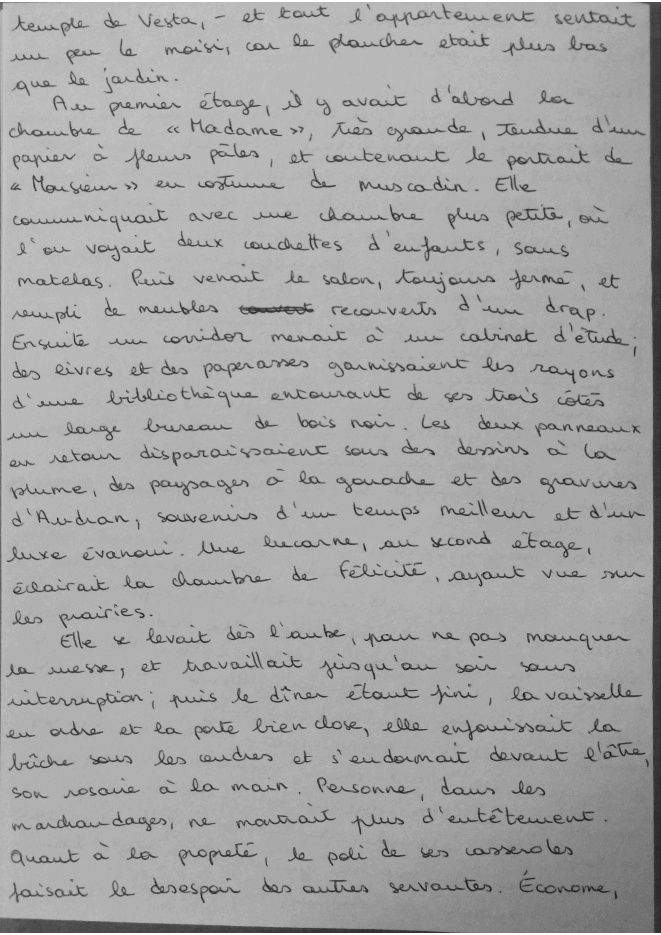 temple de Vesta, - et tout l'appartement sentait
un peu le moisi, car le plancher etait plus bas
que le jardin.
Au premier étage, il y avait d'abord la
chambre de « Madame », très grande, tendue d'un
papier à fleurs pâles, et contenant le portrait de
« Monsieur » en costume de muscadin. Elle
communiquait avec une chambre plus petite, où
l'on voyait deux couchettes d'enfants, sans
matelas. Puis venait le salon, toujours fermé, et
rempli de meubles recouverts d'un drap.
Ensuite un corridor menait à un cabinet d'étude ;
des livres et des paperasses garnissaient les rayons
d'une bibliothèque entourant de ses trois côtés
un large bureau de bois noir. Les deux panneaux
en retour disparaissaient sous des dessins à la
plume, des paysages à la gouache et des gravures
d'Audran, souvenirs d'un temps meilleur et d'un
luxe évanoui. Une lucarne, au second étage,
éclairait la chambre de Félicité, ayant vue sur
les prairies.
Elle se levait dès l'aube, pour ne pas manquer
la messe, et travaillait jusqu'au soir sans
interruption ; puis le dîner étant fini, la vaisselle
en ordre et la porte bien close, elle enfouissait la
bûche sous les cendres et s'endormait devant l'âtre,
son rosaire à la main. Personne, dans les
marchandages, ne montrait plus d'entêtement.
Quant à la propreté, le poli de ses casseroles
faisait le desespoir des autres servantes. Économe,